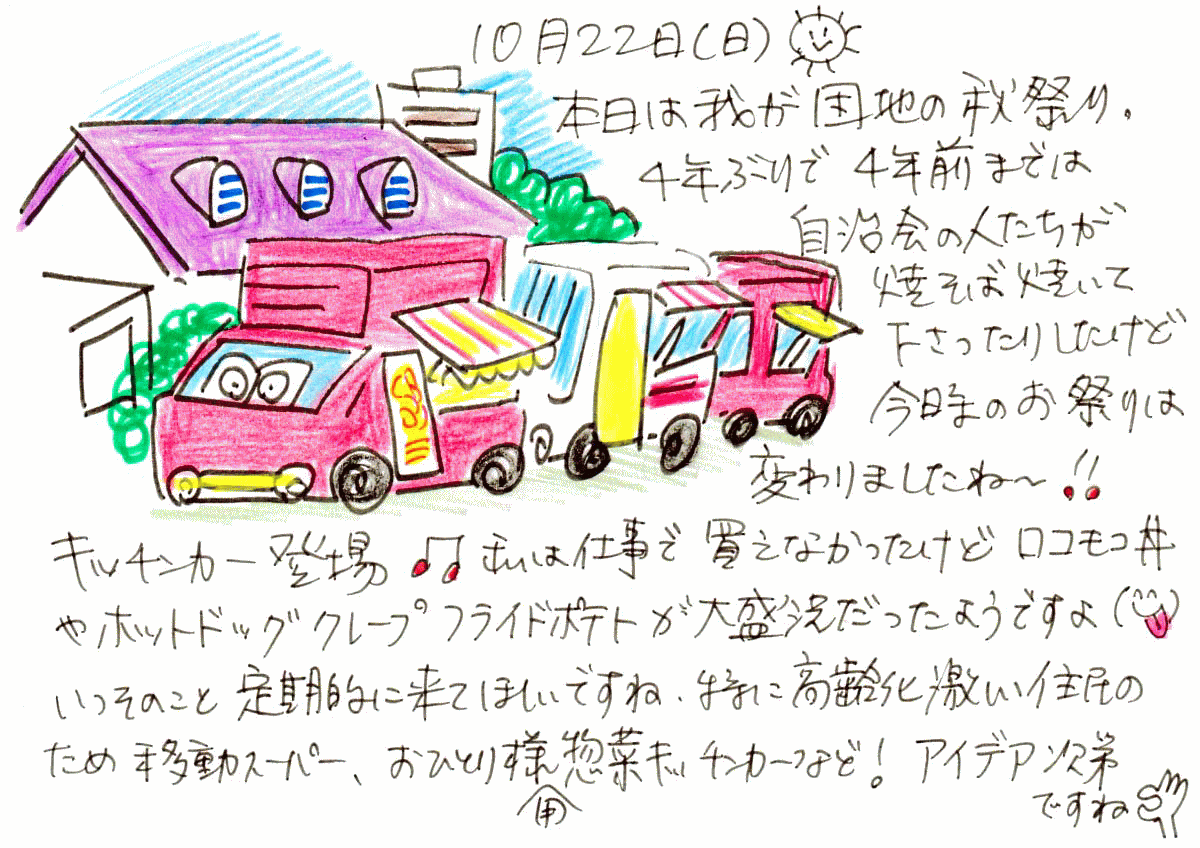 10月22日(日)
本日は我が団地の秋祭り.
4年ぶりで 4年前までは
自治会の人たちが
焼そば焼いて
下さったりしたけど
今年のお祭りは
変わりましたね〜!!
キッチンカー登場♪♫ 私は仕事で買えなかったけどロコモコ丼
やホットドッグクレープフライドポテトが大盛況だったようですよ
いっそのこと定期的に来てほしいですね、特に高齢化激しい住民の
ため移動スーパー、おひとり様惣菜キッチンカーなど! アイデア次第
用
ですね